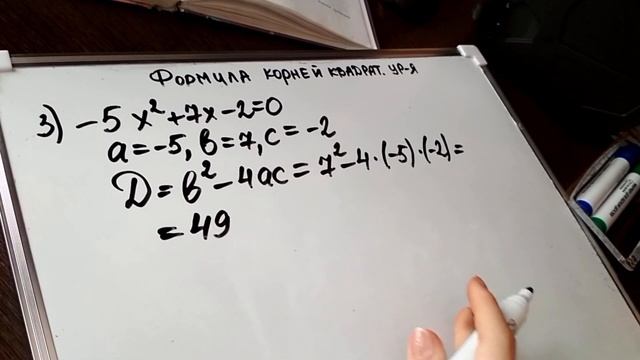 ФОРМУЛА КОРНЕЙ КВАДРАТ. УР-Я
3) -5x²+7x-2=0
a=-5, b=7, c=-2
D=b²-4ac=7²-4·(-5)·(-2)=
=49